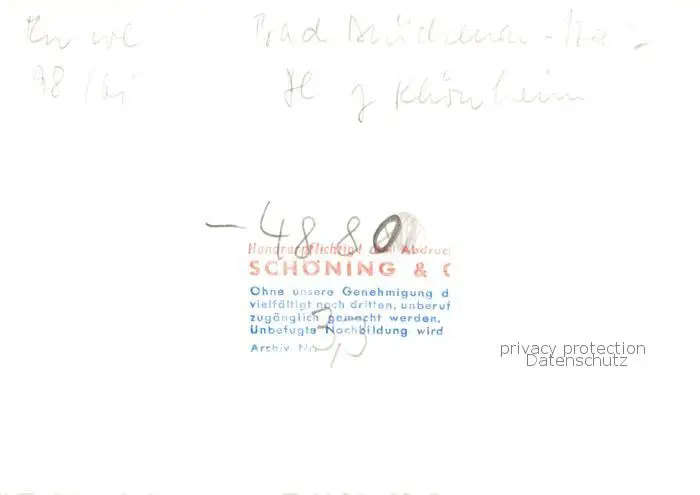 Bad Brückenau - Sta
98
Rhönheim
- 48.80
Honorarpflichtig! Abdruc
SCHÖNING & C
Ohne unsere Genehmigung d
vielfältigt noch dritten, unberuf
zugänglich gemacht werden.
Unbefugte Nachbildung wird
3,3
Archiv Nr.
privacy protection
Datenschutz